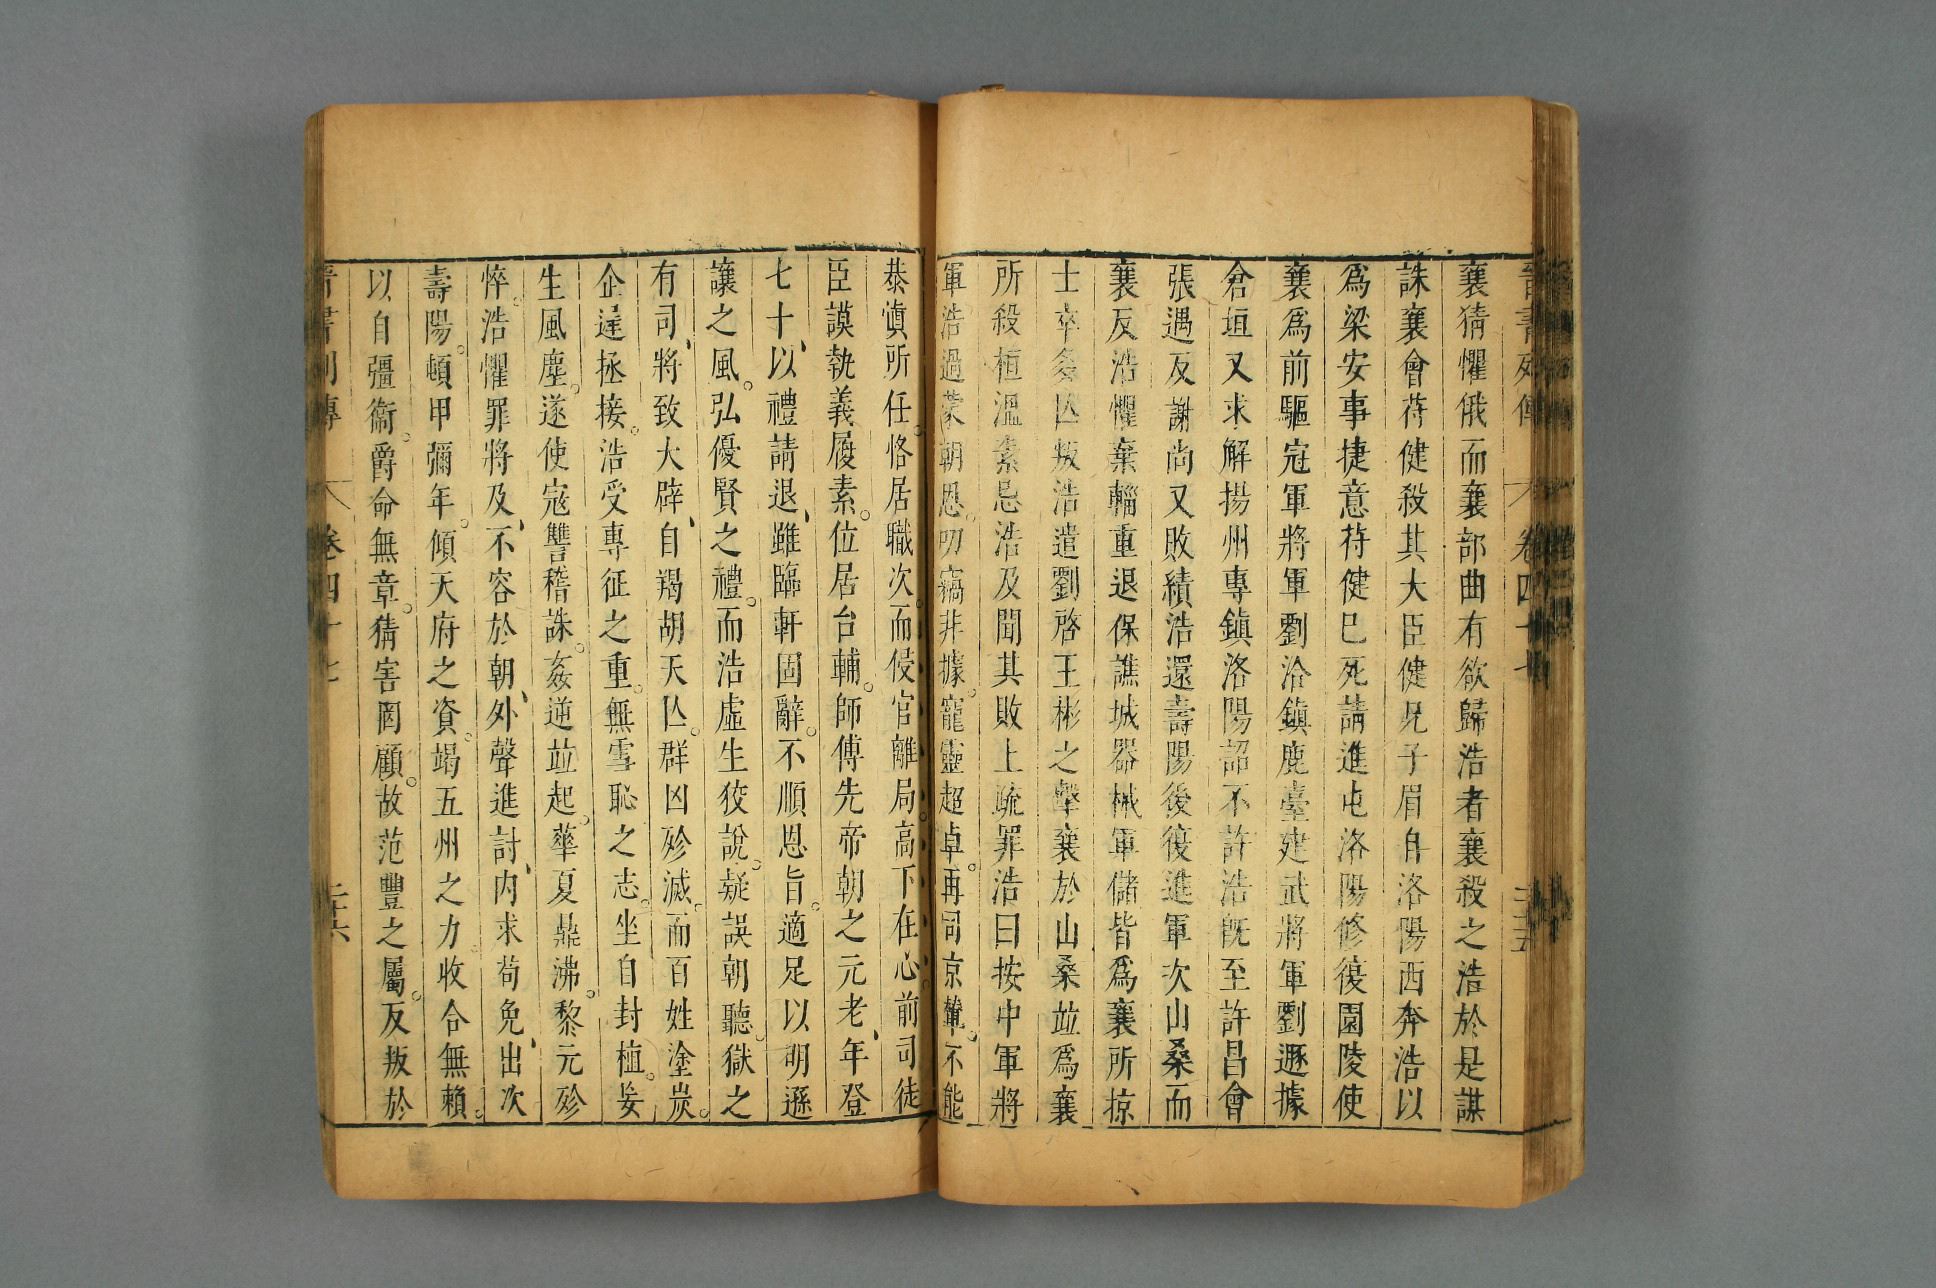 晉書列傳 卷四十七 三十五
襄猜懼俄而襄部曲有欲歸浩者襄殺之浩於是謀
誅襄會苻健殺其大臣健兄子眉自洛陽西奔浩以
爲梁安事捷意苻健巳死請進屯洛陽修復園陵使
襄爲前驅冠軍將軍劉洽鎮鹿臺建武將軍劉遯據
倉垣又求解揚州專鎮洛陽詔不許浩旣至許昌會
張遇反謝尚又敗績浩還壽陽後復進軍次山桑而
襄反浩懼棄輜重退保譙城器械軍儲皆爲襄所掠
士卒多亾叛浩遣劉啓王彬之擊襄於山桑並爲襄
所殺桓溫素忌浩及聞其敗上疏罪浩曰按中軍將
軍浩過蒙朝恩。叨竊非據。寵靈超卓。再司京輦。不能
恭慎所任。恪居職次。而侵官離局。高下在心。前司徒
臣謨執義履素。位居台輔。師傅先帝朝之元老、年登
七十、以禮請退、雖臨軒固辭。不順恩旨。適足以明遜
讓之風。弘優賢之禮。而浩虛生狡說。疑誤朝聽。獄之
有司、將致大辟、自羯胡夭亾。群凶殄滅。而百姓塗炭。
企遲拯接。浩受專征之重。無雪恥之志。坐自封植。妄
生風塵。遂使寇讐稽誅。姦逆並起。華夏鼎沸。黎元殄
悴。浩懼罪將及、不容於朝、外聲進討、內求苟免、出次
壽陽。頓甲彌年。傾天府之資。竭五州之力。收合無賴。
以自彊衞。爵命無章。猜害罔顧。故范豐之屬。反叛於
晉書列傳 卷四十七 三十六